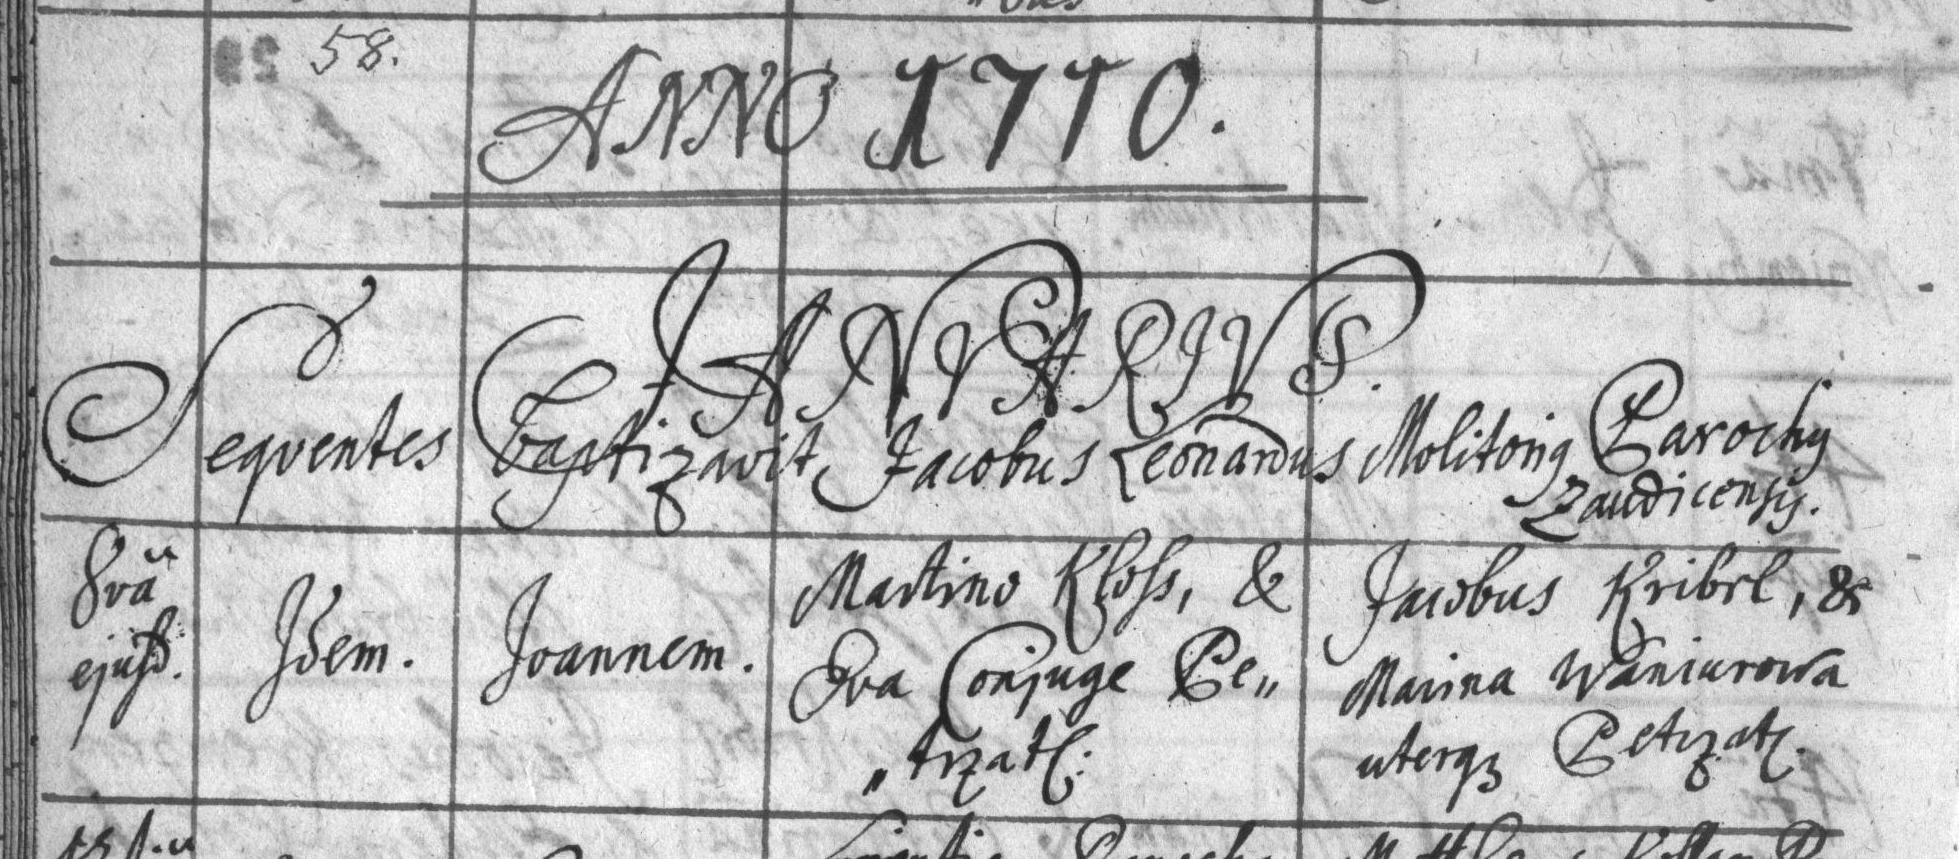 58.
ANNO 1710.
JANVARIVS.
Seqventes baptizavit Jacobus Leonardus Molitorig Parochy
Zaudicensis.
8vâ
ejusd.
Idem.
Joannem.
Martino Kloss, &
Eva Conjuge Pe„
„trzat:
Jacobus Kribel, &
Marina Waniurowa
uterqz Petrzat.